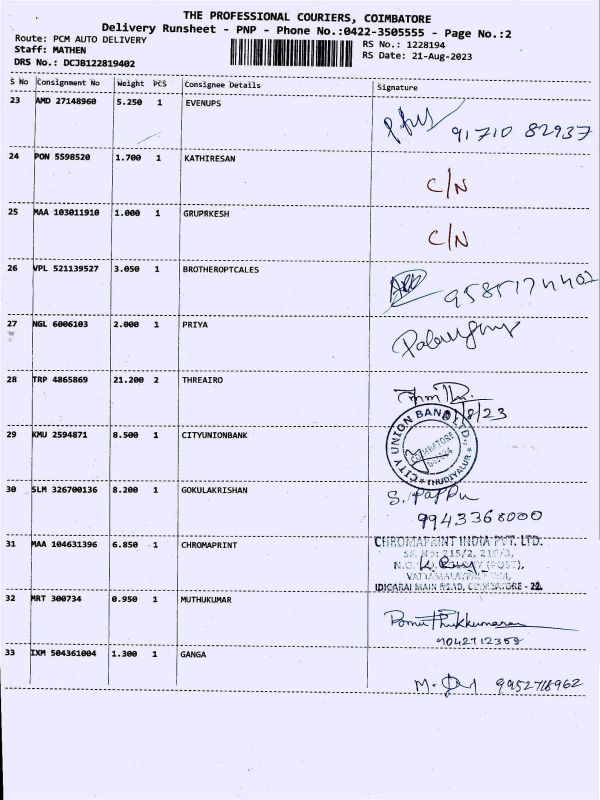 THE PROFESSIONAL COURIERS, COIMBATORE
Delivery Runsheet - PNP - Phone No.:0422-3505555 - Page No.:2
Route: PCM AUTO DELIVERY
Staff: MATHEN
DRS No.: DCJB122819402
RS No.: 1228194
RS Date: 21-Aug-2023
S No Consignment No Weight PCS Consignee Details Signature
23 AMD 27148960 5.250 1 EVENUPS
91710 82937
24 PON 5598520 1.700 1 KATHIRESAN
C/N
25 MAA 103011910 1.000 1 GRUPRKESH
C/N
26 VPL 521139527 3.050 1 BROTHEROPTCALES
9585174402
27 NGL 6006103 2.000 1 PRIYA
28 TRP 4865869 21.200 2 THREAIRO
/8/23
29 KMU 2594871 8.500 1 CITYUNIONBANK
CITY UNION BANK LTD.,
COIMBATORE
* THUDIYALUR *
30 SLM 326700136 8.200 1 GOKULAKRISHAN
S. Pappu
9943368000
31 MAA 104631396 6.850 1 CHROMAPRINT
CHROMAPRINT INDIA PVT. LTD.
SF. No: 215/2, 216/3,
(POST),
IDIGARAI MAIN ROAD, COIMBATORE - 22.
32 MRT 300734 0.950 1 MUTHUKUMAR
Ponmuthukkumaran
9042712359
33 IXM 504361004 1.300 1 GANGA
M. 9952718962